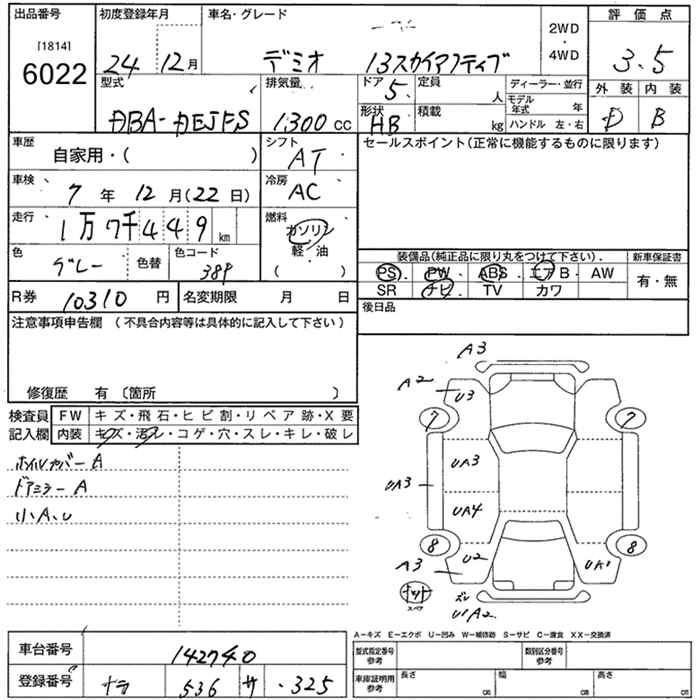 出品番号 初度登録年月 車名・グレード 評価点
[1814]
6022
24 12月 デミオ 13スカイアクティブ 2WD・4WD 3.5
型式 排気量 ドア 5. 定員 人 ディーラー・並行 外装 内装
DBA-DEJFS 1.300 cc 形状 HB 積載 kg モデル年式 年 ハンドル 左・右 D B
車歴 自家用・( ) シフト AT セールスポイント(正常に機能するものに限ります)
車検 7年 12月(22日) 冷房 AC
走行 1万7千449km 燃料 ガソリン 軽・油 ( )
色 グレー 色替 色コード 38P 装備品(純正品に限り丸をつけて下さい). 新車保証書
PS・PW・ABS・エアB・AW 有・無
SR ナビ TV カワ
R券 10310円 名変期限 月 日 後日品
注意事項申告欄 (不具合内容等は具体的に記入して下さい)
修復歴 有 〔箇所 〕
検査員記入欄 FW キズ・飛石・ヒビ割・リペア跡・X要
内装 キズ・汚レ・コゲ・穴・スレ・キレ・破レ
ホイルカバーA
ドアミラーA
小A.U
A3
A2 U3
7 7
UA3
UA3
UA4
8 8
A3 U2 UA1
スペア
UA2
A-キズ E-エクボ U-凹み W-補修跡 S-サビ C-腐食 XX-交換済
車台番号 142740 型式指定番号 参考 類別区分番号 参考
登録番号 ナラ 536 サ .325 車庫証明用 参考 長さ cm 幅 cm 高さ cm